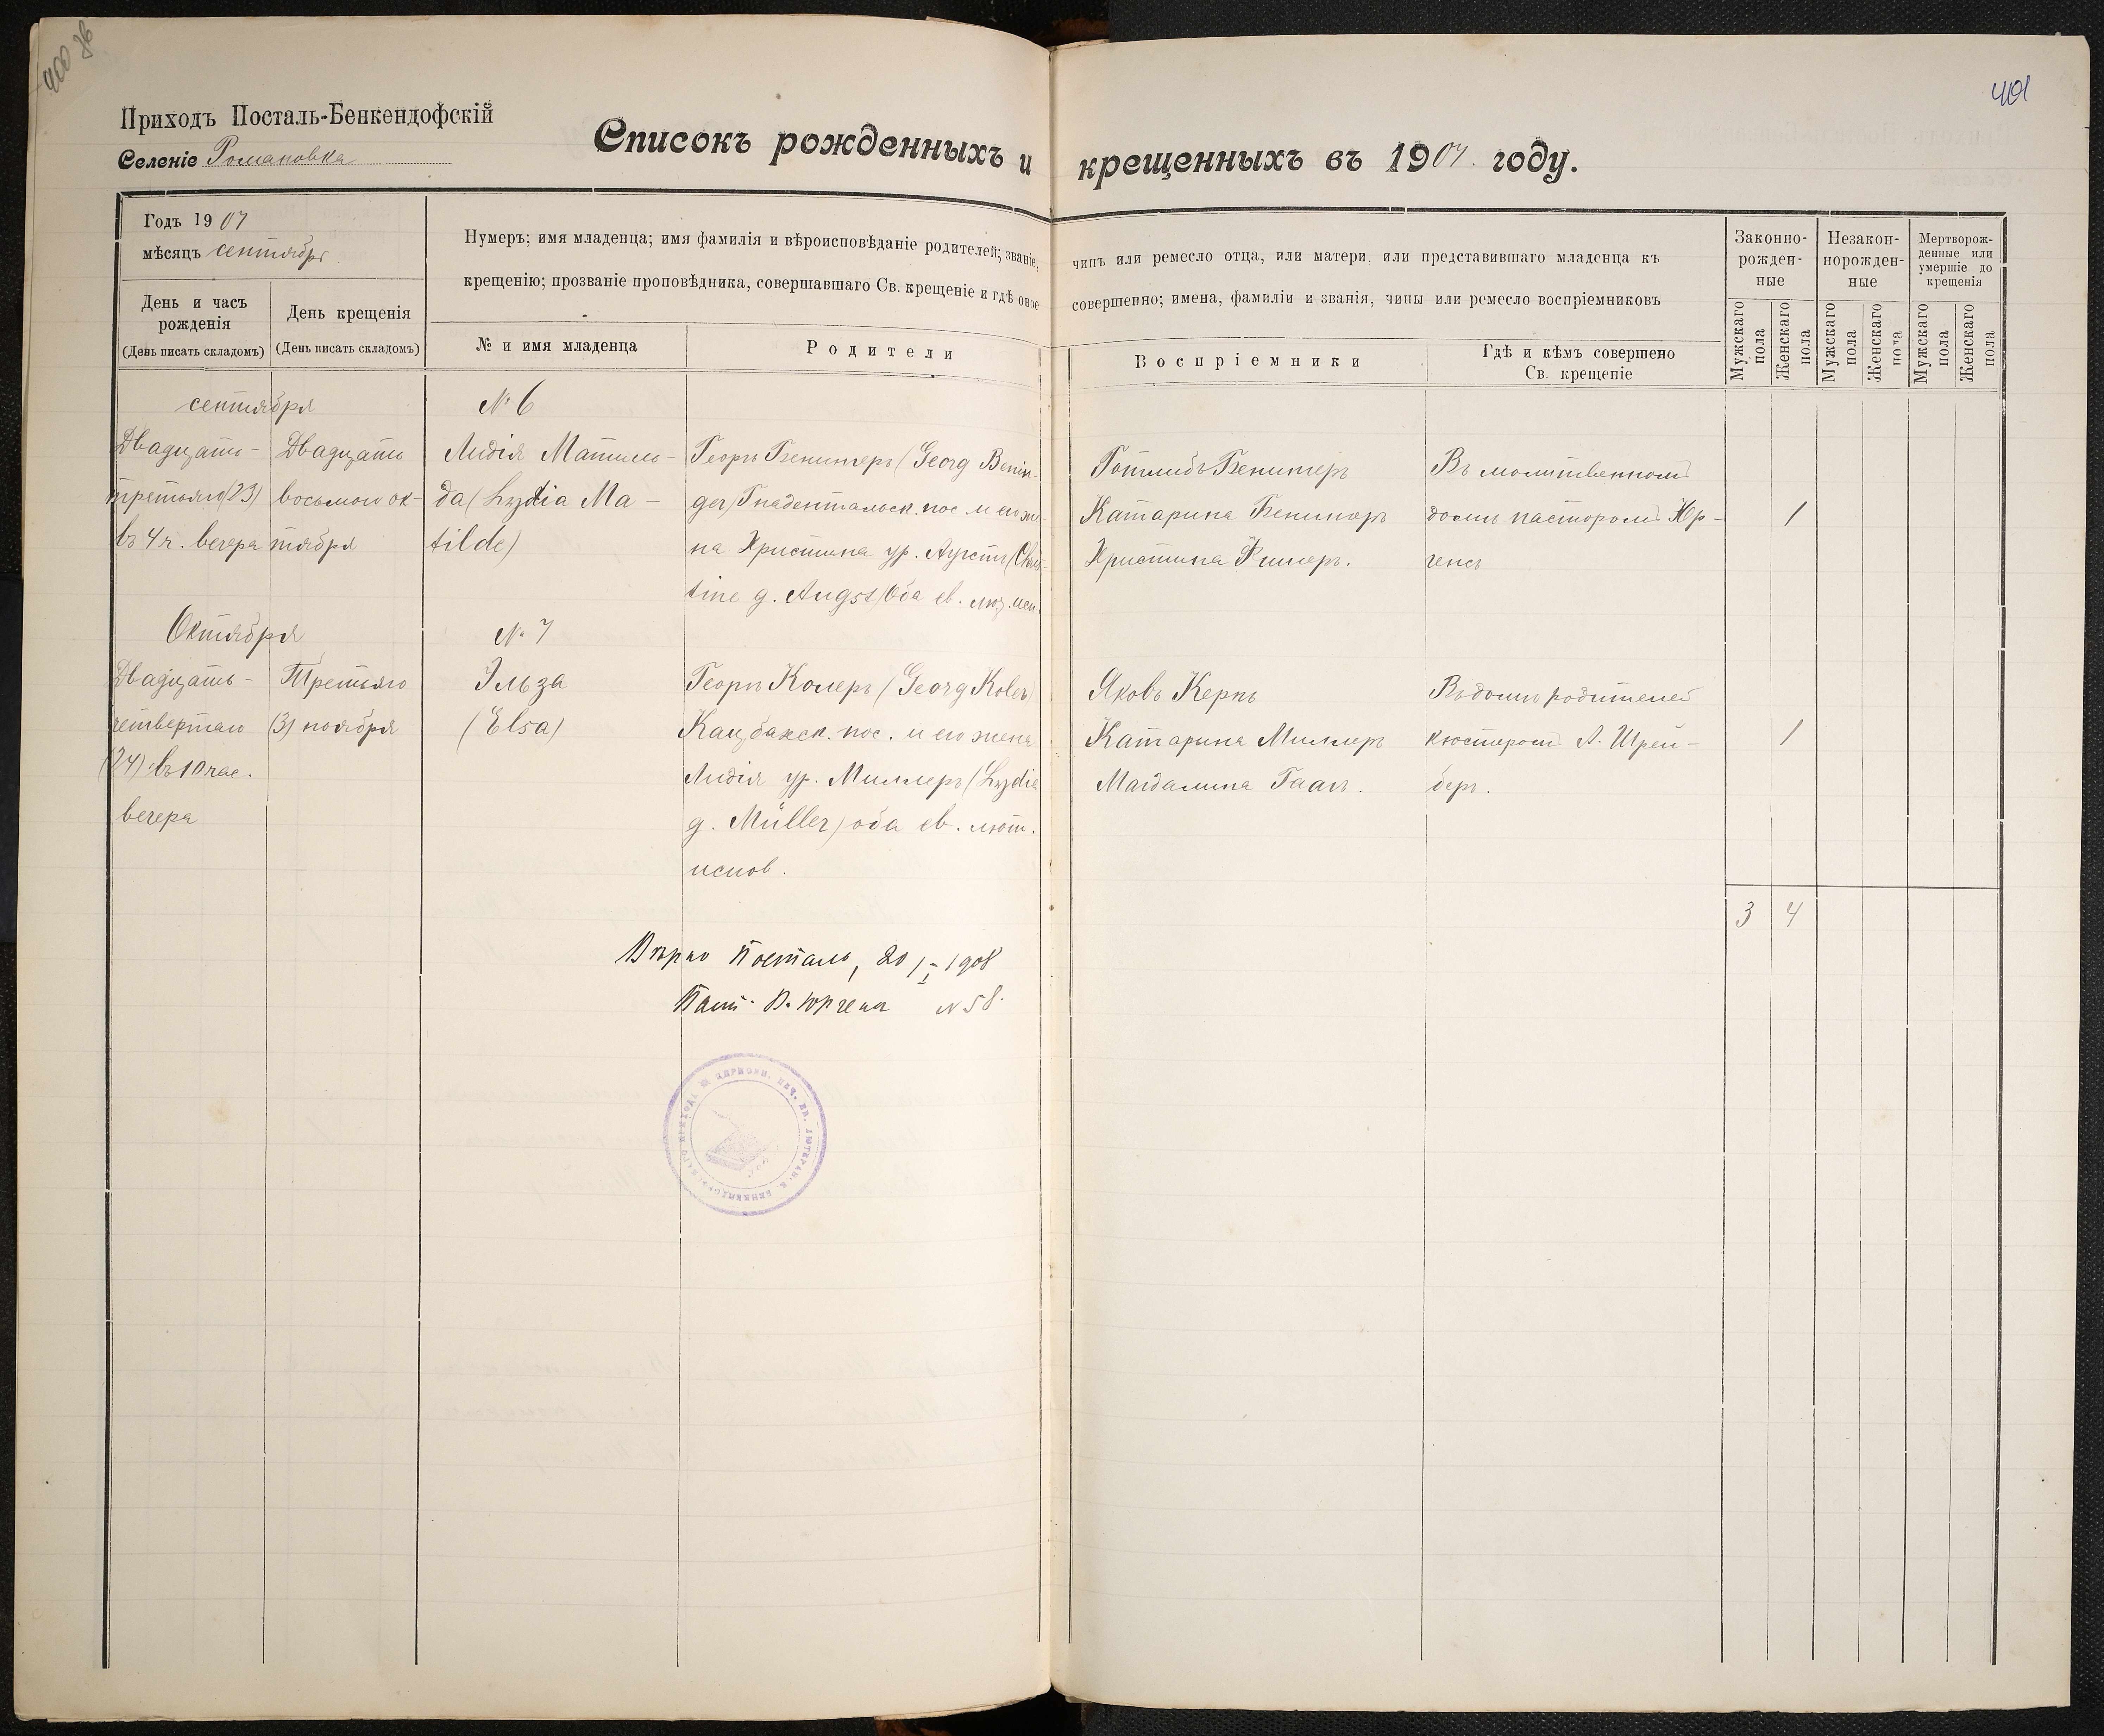 400 86
401
Приходъ Посталь-Бенкендофскій
Селеніе Романовка
Списокъ рожденныхъ и крещенныхъ въ 1907 году.
Годъ 1907
мѣсяцъ сентябрь
День и часъ рожденія
(День писать складомъ)
День крещенія
(День писать складомъ)
Нумеръ; имя младенца; имя фамилія и вѣроисповѣданіе родителей; званіе, чинъ или ремесло отца, или матери, или представившаго младенца къ
крещенію; прозваніе проповѣдника, совершавшаго Св. крещеніе и гдѣ оное совершенно; имена, фамиліи и званія, чины или ремесло воспріемниковъ
№ и имя младенца
Родители
Воспріемники
Гдѣ и кѣмъ совершено
Св. крещеніе
Законно-
рожден-
ные
Незакон-
норожден-
ные
Мертворож-
денные или
умершіе до
крещенія
Мужскаго пола
Женскаго пола
Мужскаго пола
Женскаго пола
Мужскаго пола
Женскаго пола
сентября
№ 6
Двадцать-
третьяго (23)
въ 4 ч. вечера
Двадцать
восьмого ок-
тября
Лидія Матиль-
да (Lydia Ma-
tilde)
Георгъ Бенингеръ (Georg Benin-
ger) Гнадентальск. пос. и его же-
на Христина ур. Аугстъ (Chris-
tine g. Augst) Оба ев. лют. исп.
Готлибъ Бенингеръ
Катарина Бенингеръ
Христина
Въ молитвенномъ
домѣ пасторомъ Юр-
генсъ
1
Октября
№ 7
Двадцать-
четвертаго
(24) въ 10 час.
вечера
Третьяго
(3) ноября
Эльза
(Elsa)
Георгъ Колеръ (Georg Koler)
Кацбахск. пос. и его жена
Лидія ур. Миллеръ (Lydia
g. Müller) оба ев. лют.
испов.
Яковъ Кернъ
Катарина Миллеръ
Магдалина Гаагъ.
Въ домѣ родителей
кюстеромъ А. Шрей-
беръ.
1
3 4
Вѣрно Посталь, 20/I 1908
Паст. В. Юргенсъ № 58.